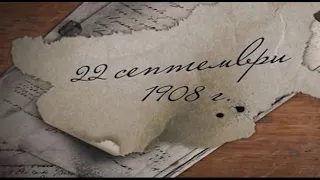 22 септември
1908 г.